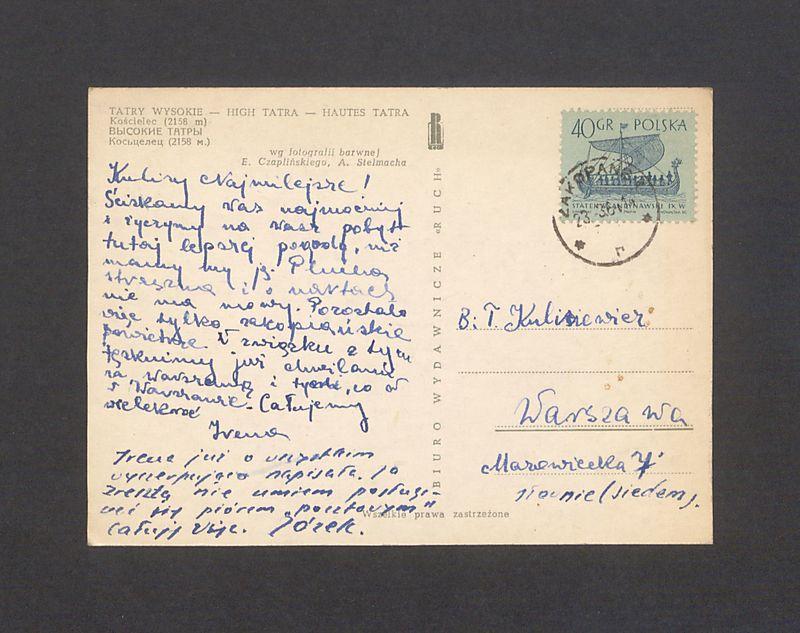 TATRY WYSOKIE — HIGH TATRA — HAUTES TATRA
Kościelec (2158 m)
ВЫСОКИЕ ТАТРЫ
Косьцелец (2158 м.)
wg fotografii barwnej
E. Czaplińskiego, A. Stelmacha
Kulisy Najmilejsze!
Ściskamy Was najmocniej
i życzymy na Wasz pobyt
tutaj lepszej pogody, niż
mamy my ją. Plucha
straszna i o nartach
nie ma mowy. Pozostało
więc tylko zakopiańskie
powietrze. W związku z tym
tęsknimy już chwilami
za Warszawą i tymi, co są
w Warszawie. Całujemy
wielekroć
Irena
Irena już o wszystkim
wyczerpująco napisała. Ja
zresztą nie umiem posługi-
wać się piórem "pocztowym"
Całuję Was. Józek.
BIURO WYDAWNICZE «RUCH»
Wszelkie prawa zastrzeżone
40GR POLSKA
ZAKOPANE
STATEK SKANDYNAWSKI IX W.
B. T. Kulisiewicz
Warszawa
Mazowiecka 7
słownie (siedem).